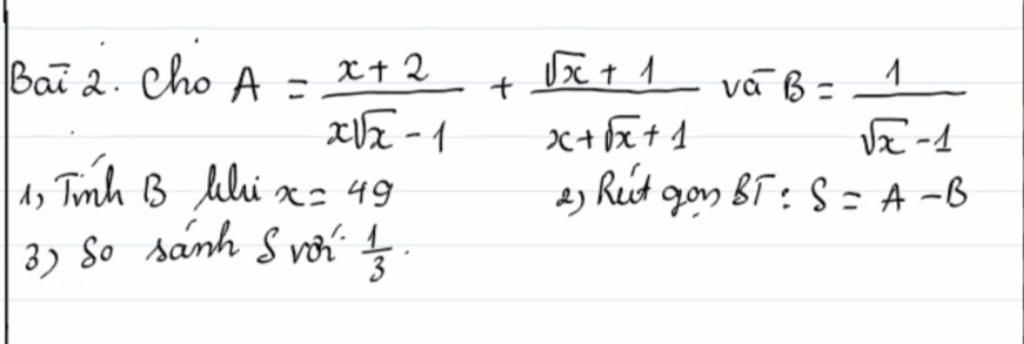 Bài 2. Cho A = \frac{x+2}{x\sqrt{x}-1} + \frac{\sqrt{x}+1}{x+\sqrt{x}+1} và B = \frac{1}{\sqrt{x}-1}
1, Tính B khi x = 49 2, Rút gọn BT: S = A - B
3) So sánh S với \frac{1}{3}.